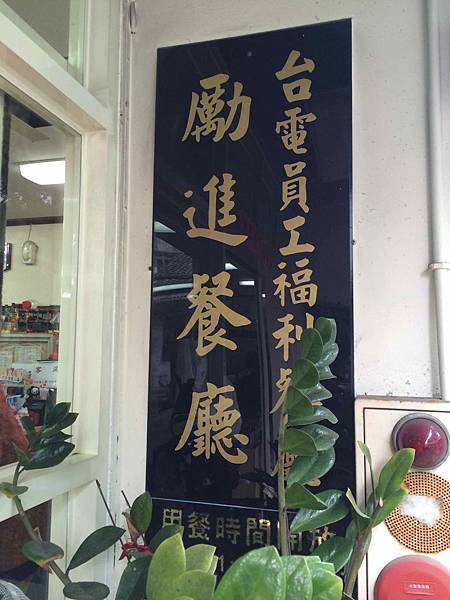 台電員工福利
勵進餐廳
用餐時間開放